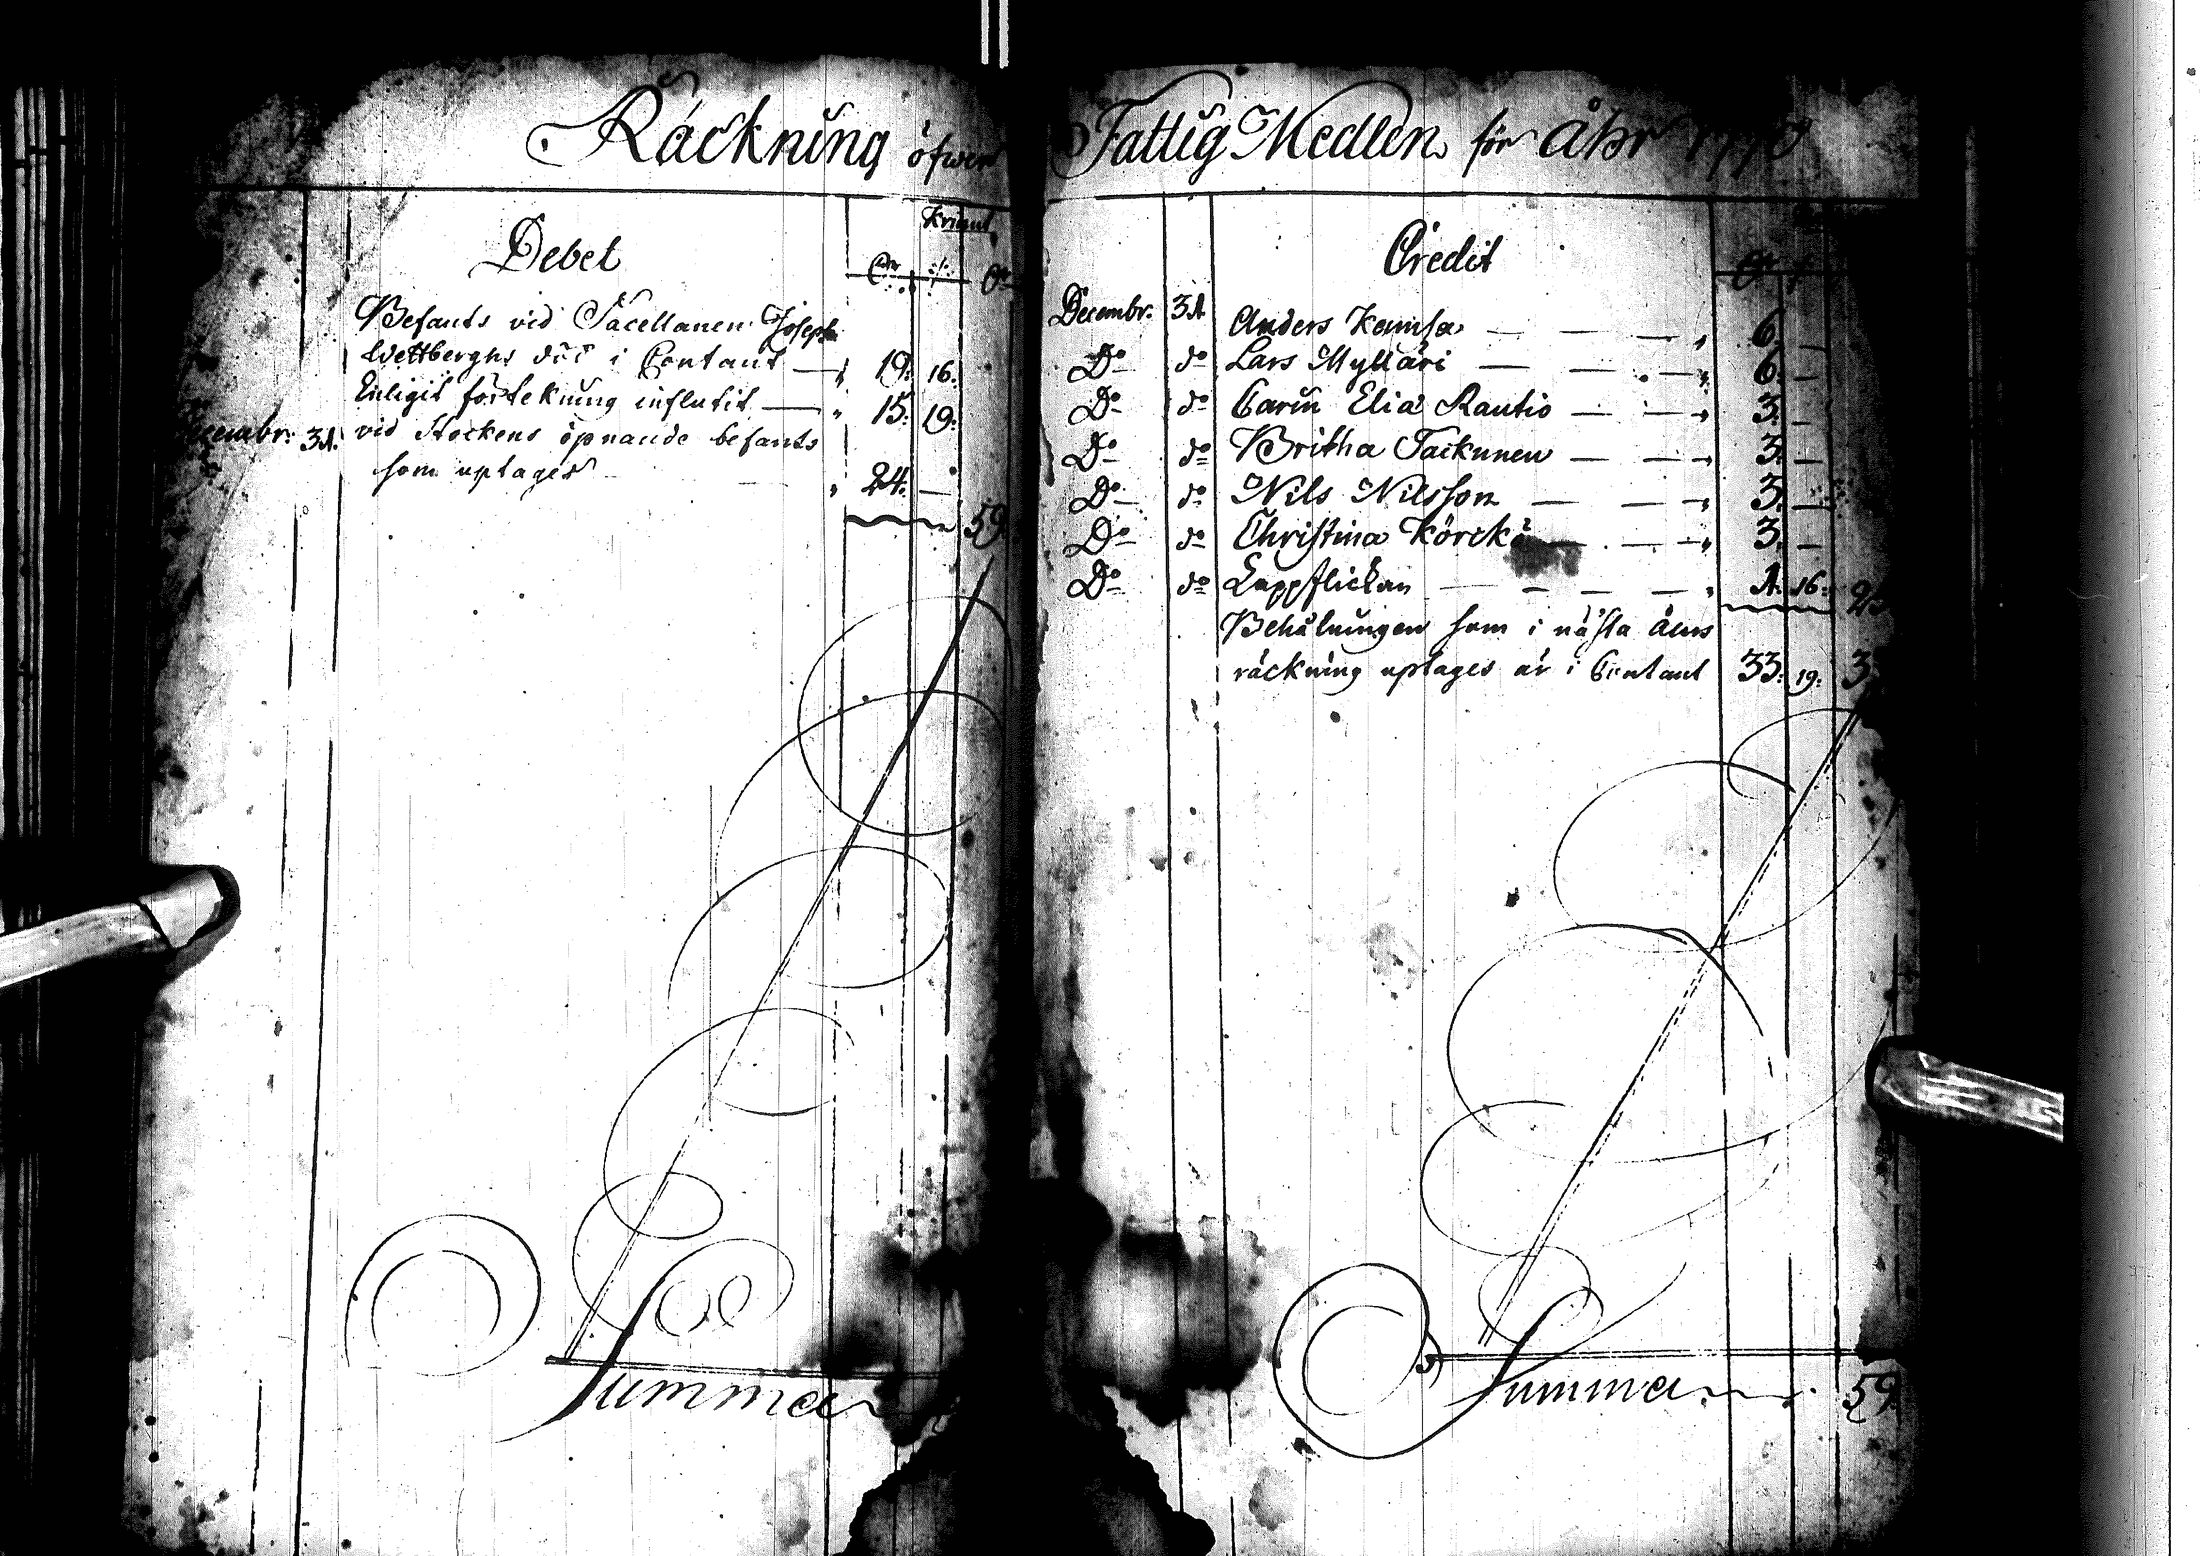 Räckning öfwer
Krigmt.
Debet
Befants vid Sacellanen Joseph
Wettberghs död i Contant — " 19: 16:
Enligit förtekning influtit — " 15: 19:
Decembr: 31. vid Stockens öpnande befants
som uptages " 24: —
59
Summa
Fattig Medlen för Åhr 1770
Credit
Decembr. 31 Anders Kemsa — — — " 6. —
Do do Lars Mylläri — — — " 6. —
Do do Carin Elia Rautio — — " 3. —
Do do Britha Tackunen — — — " 3. —
Do do Nils Nilsson — — — " 3. —
Do do Christina Körckö — — " 3. —
Do do Lappflickan — — — — " 1. 16:
Behålningen som i nästa åhrs
räckning uptages är i Contant 33: 19:
Summa 59